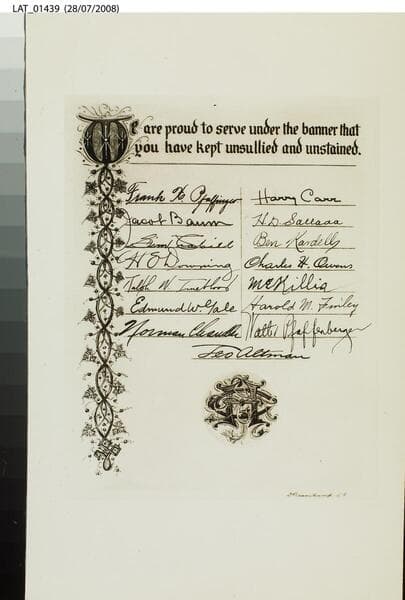 LAT_01439 (28/07/2008)
We are proud to serve under the banner that
you have kept unsullied and unstained.
Frank X Pfaffinger Harry Carr
Jacob Baum H.D.
Ben
Charles H. Owens
Ralph W. Trueblood McKillis
Edmund W. Gale Harold M. Finley
Norman Chandler Pfaffenberger
Leo Altman